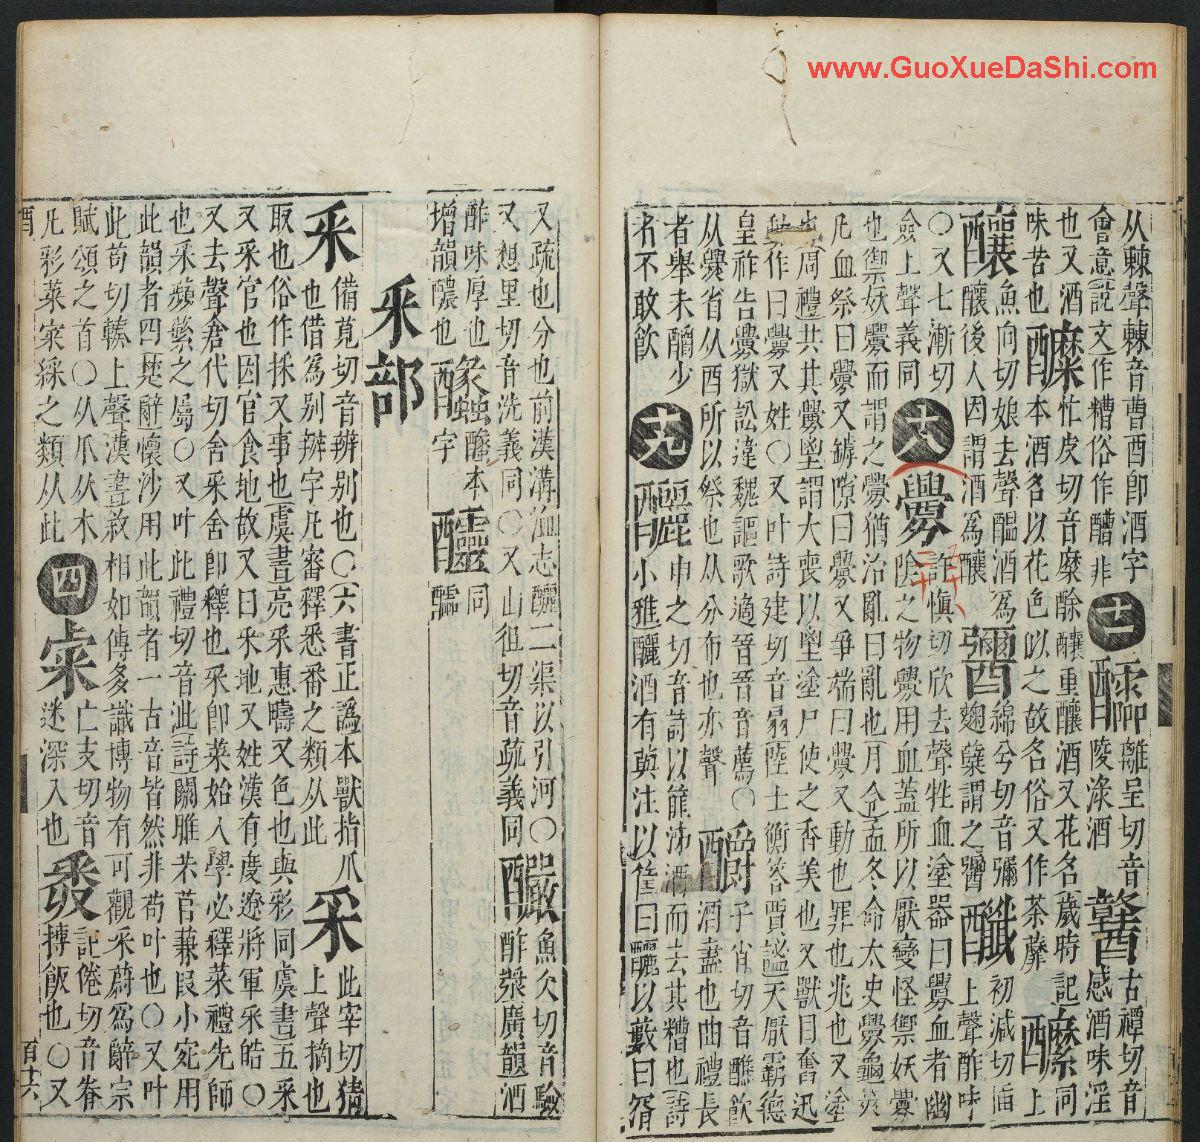 www.GuoXueDaShi.com
从㯥聲㯥音曹酉卽酒字
會意說文作糟俗作醩非
十七
醽離呈切音
陵淥酒
古禫切音
感酒味淫
也又酒
醾忙皮切音糜酴釀重釀酒又花名歲時記
醿同
味苦也
本酒名以花色似之故名俗又作荼蘼
上
釀魚向切娘去聲醞酒爲
釀後人因謂酒爲釀
綿兮切音彌
麴糵謂之
初減切
上聲酢味
〇又七漸切
僉上聲義同
十八
釁許愼切欣去聲牲血塗器曰釁血者幽
陰之物釁用血蓋所以厭變怪禦妖釁
也禦妖釁而謂之釁猶治亂曰亂也月令孟冬命太史釁龜筴
凡血祭曰釁又罅隙曰釁又爭端曰釁又動也罪也兆也又塗
也周禮共其釁鬯謂大喪以鬯塗尸使之香美也又獸自奮迅
作曰釁又姓〇又叶詩建切音扇陸士衡答賈謐天厭霸德
皇祚告釁獄訟違魏謳歌適晉晉音薦〇
从爨省从酉所以祭也从分分布也亦聲
釂子肖切音醮飮
酒盡也曲禮長
者舉未釂少
名不敢飮
十九
釃申之切音詩以筐泲酒而去其糟也詩
小雅釃酒有藇注以筐曰釃以藪曰湑
又疏也分也前漢溝洫志釃二渠以引河〇
又想里切音洗義同〇又山徂切音疏義同
釅魚欠切音驗
酢漿廣韻酒
酢味厚也
增韻醲也
本
字
同
釆部
釆備莧切音辨別也〇六書正譌本獸指爪
也借爲別辨字凡審釋悉番之類从此
采此宰切猜
上聲摘也
取也俗作採又事也虞書亮采惠疇又色也與彩同虞書五采
又采官也因官食地故又曰采地又姓漢有度遼將軍采皓〇
又去聲倉代切舍采舍卽釋也采卽菜始入學必釋菜禮先師
也采蘋蘩之屬〇又叶此禮切音泚詩關雎芣苢蒹葭小宛用
此韻者四楚辭懷沙用此韻者一古音皆然非苟叶也〇又叶
此苟切輳上聲漢書敘相如傳多識博物有可觀采蔚爲辭宗
賦頌之首〇从爪从木
凡彩菜寀綵之類从此
四
亡支切音
迷深入也
居倦切音眷
摶飯也〇又
酉
百十六